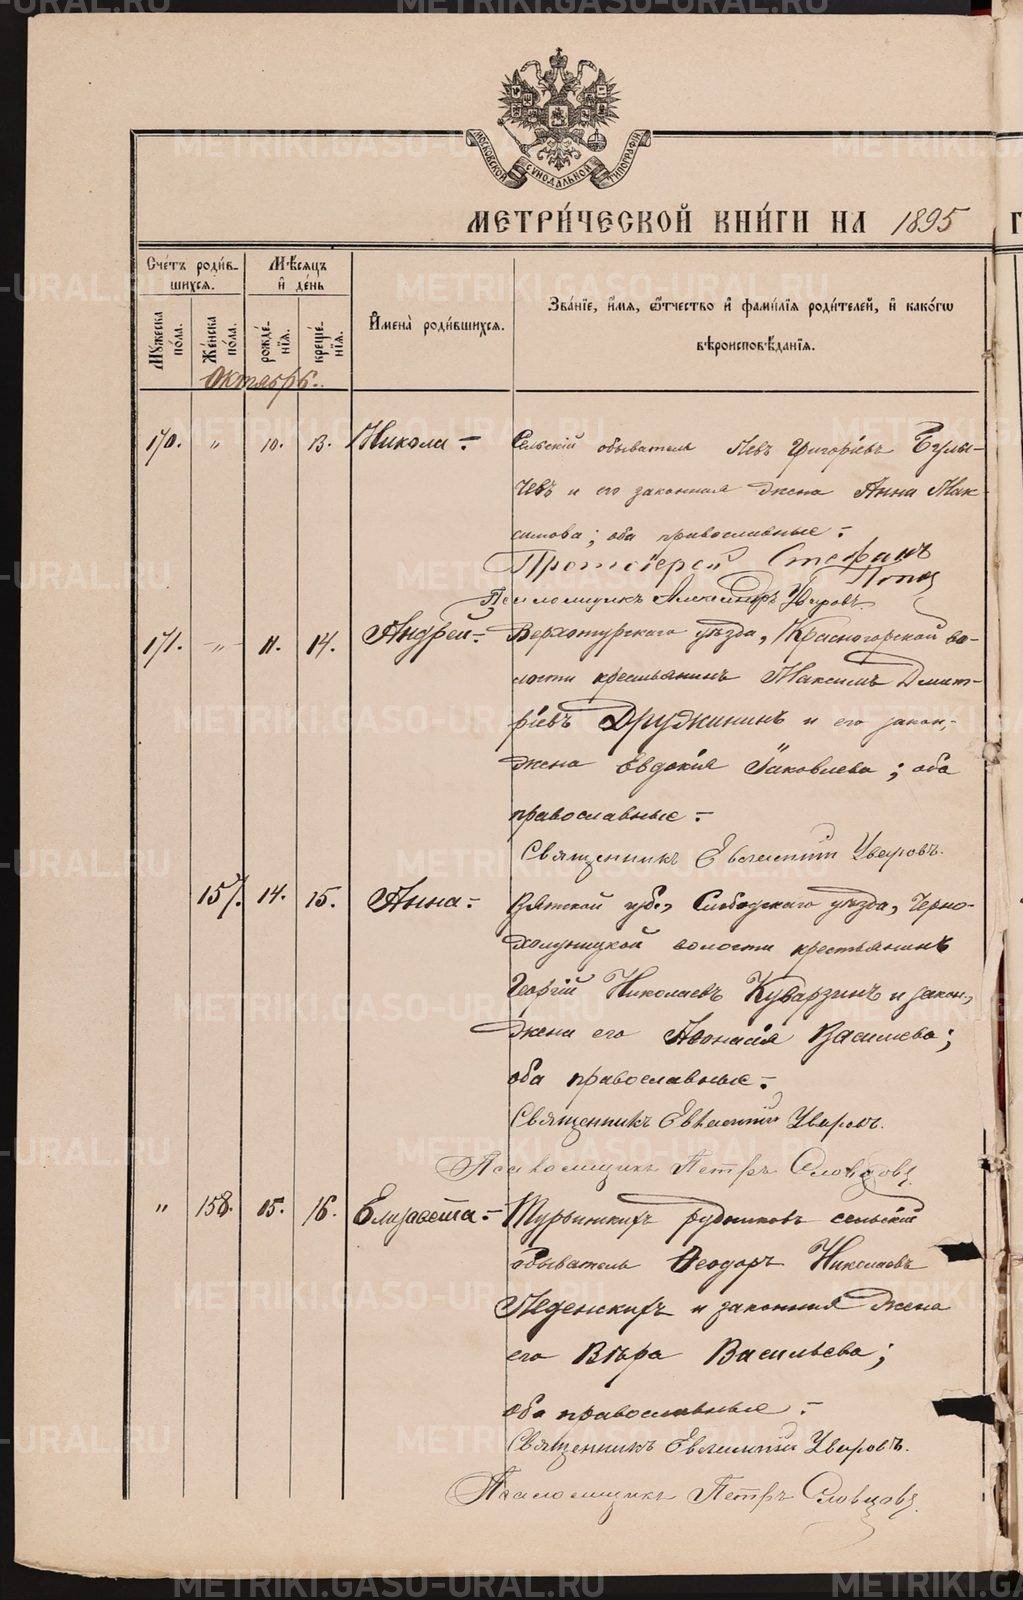 МОСКОВСКОЙ СУНОДАЛЬНОЙ ТИПОГРАФИИ
МЕТРИ́ЧЕСКОЙ КНИ́ГИ НА 1895
Сче́тъ роди́в-
шихся.
Мѣсяцъ
и҆ де́нь
Мꙋжеска
по́ла.
Же́нска
по́ла.
рожде́-
нїѧ.
креще́-
нїѧ.
И҆мена̀ роди́вшихся.
Зва́нїе, и҆́мя, ѻ҆́тчество и҆ фами́лїѧ роди́телей, и҆ како́гѡ
вѣроисповѣ́данїѧ.
Октябрь.
170. " 10. 13. Никола- Сельскій обыватель Левъ Григоріевъ Булы-
чевъ и его законная жена Анна Мак-
симова; оба православные.-
Протоіерей Стефанъ
Псаломщикъ Александръ Уваровъ
171. " 11. 14. Андрей- Верхотурскаго уѣзда, Красногорской во-
лости крестьянинъ Максимъ Дмит-
ріевъ Дружининъ и его закон,
жена Евдокія Іаковлева; оба
православные.-
Священникъ Евгеній Уваровъ.
157. 14. 15. Анна- Вятской губ., Слободскаго уѣзда, Черно-
холуницкой волости крестьянинъ
Георгій Николаевъ Куварзинъ и закон,
жена его Аѳанасія Васильева;
оба православные.-
Священникъ Уваровъ.
Псаломщикъ Петръ Словцовъ
" 158. 15. 16. Елизавета- Турьинскихъ рудниковъ сельскій
обыватель Ѳеодоръ Николаевъ
Леденскихъ и законная жена
его Вѣра Васильева;
оба православные.-
Священникъ Уваровъ.
Псаломщикъ Петръ Словцовъ
METRIKI.GASO-URAL.RU